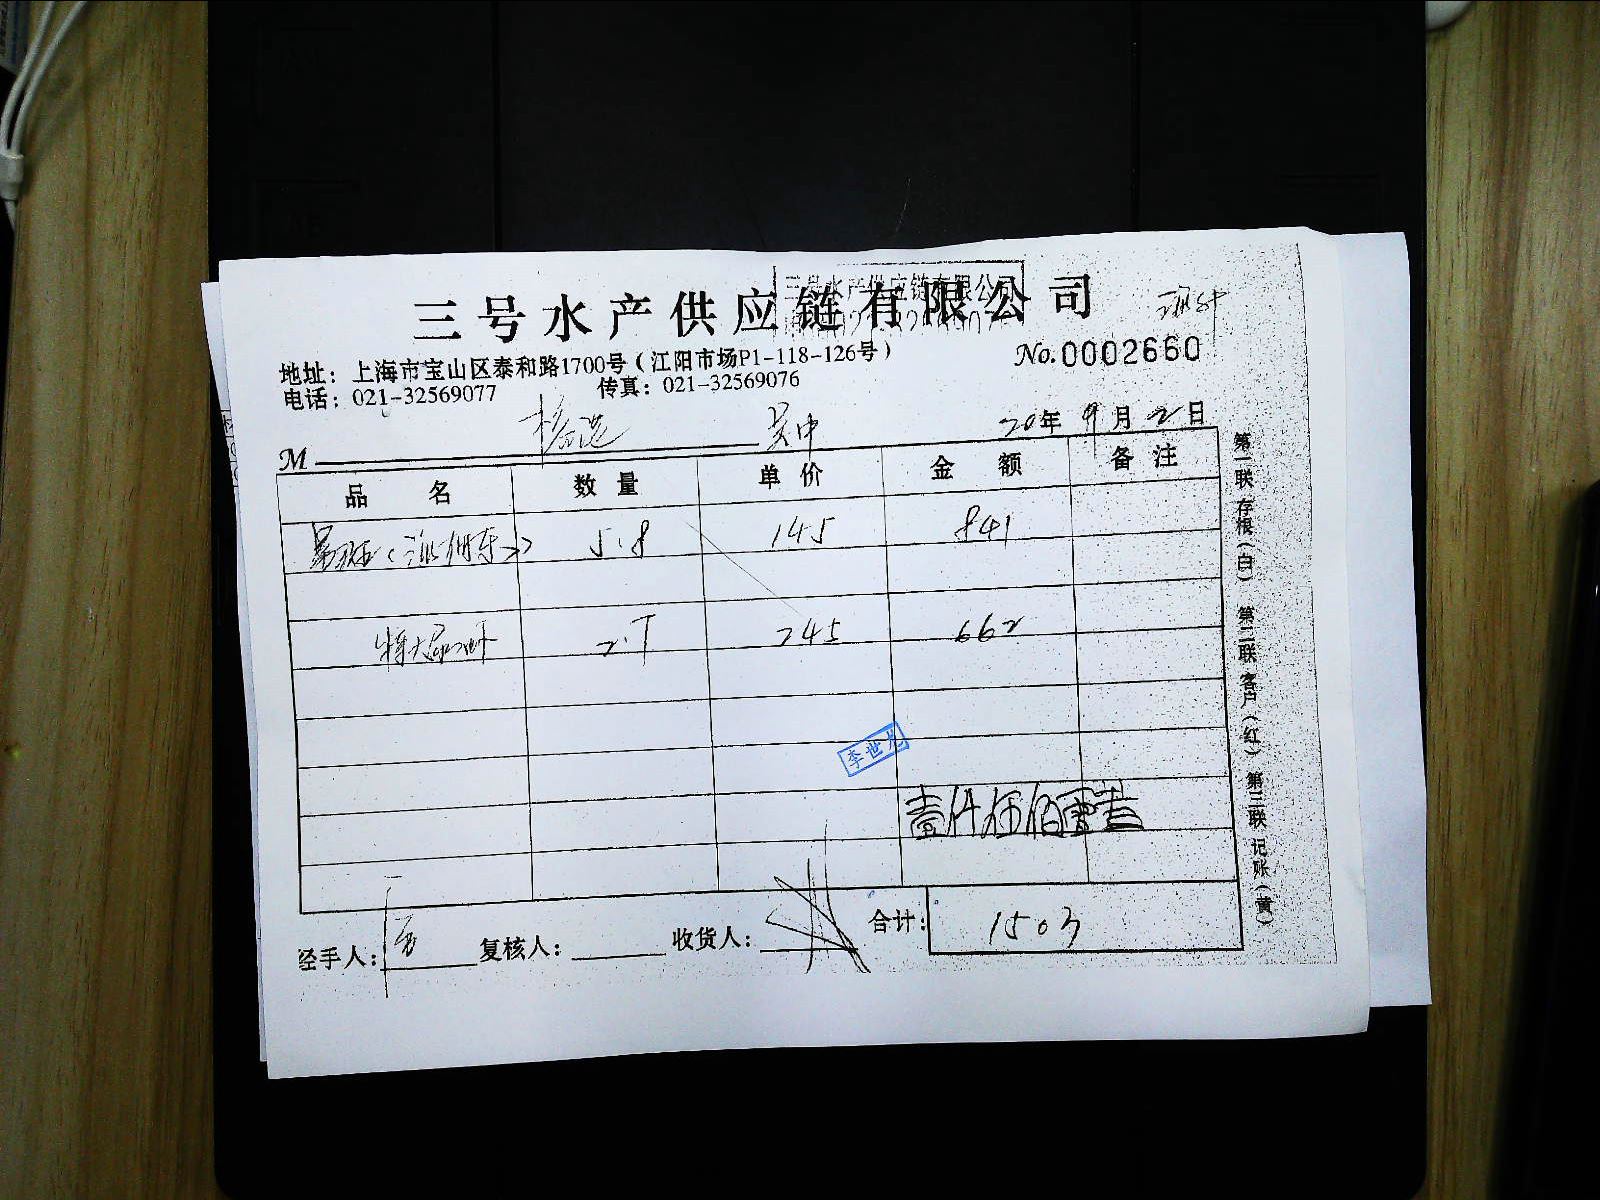 三号水产供应链有限公司
三号水产供应链有限公司
No.0002660
地址：上海市宝山区泰和路1700号（江阳市场P1-118-126号）
电话：021-32569077 传真：021-32569076
M 20年9月2日
品名 数量 单价 金额 备注
5.8 145 841
特大 2.7 245 662
李世
壹仟伍佰零叁
合计： 1503
经手人： 复核人： 收货人：
第一联 存根（白） 第二联 客户（红） 第三联 记账（黄）